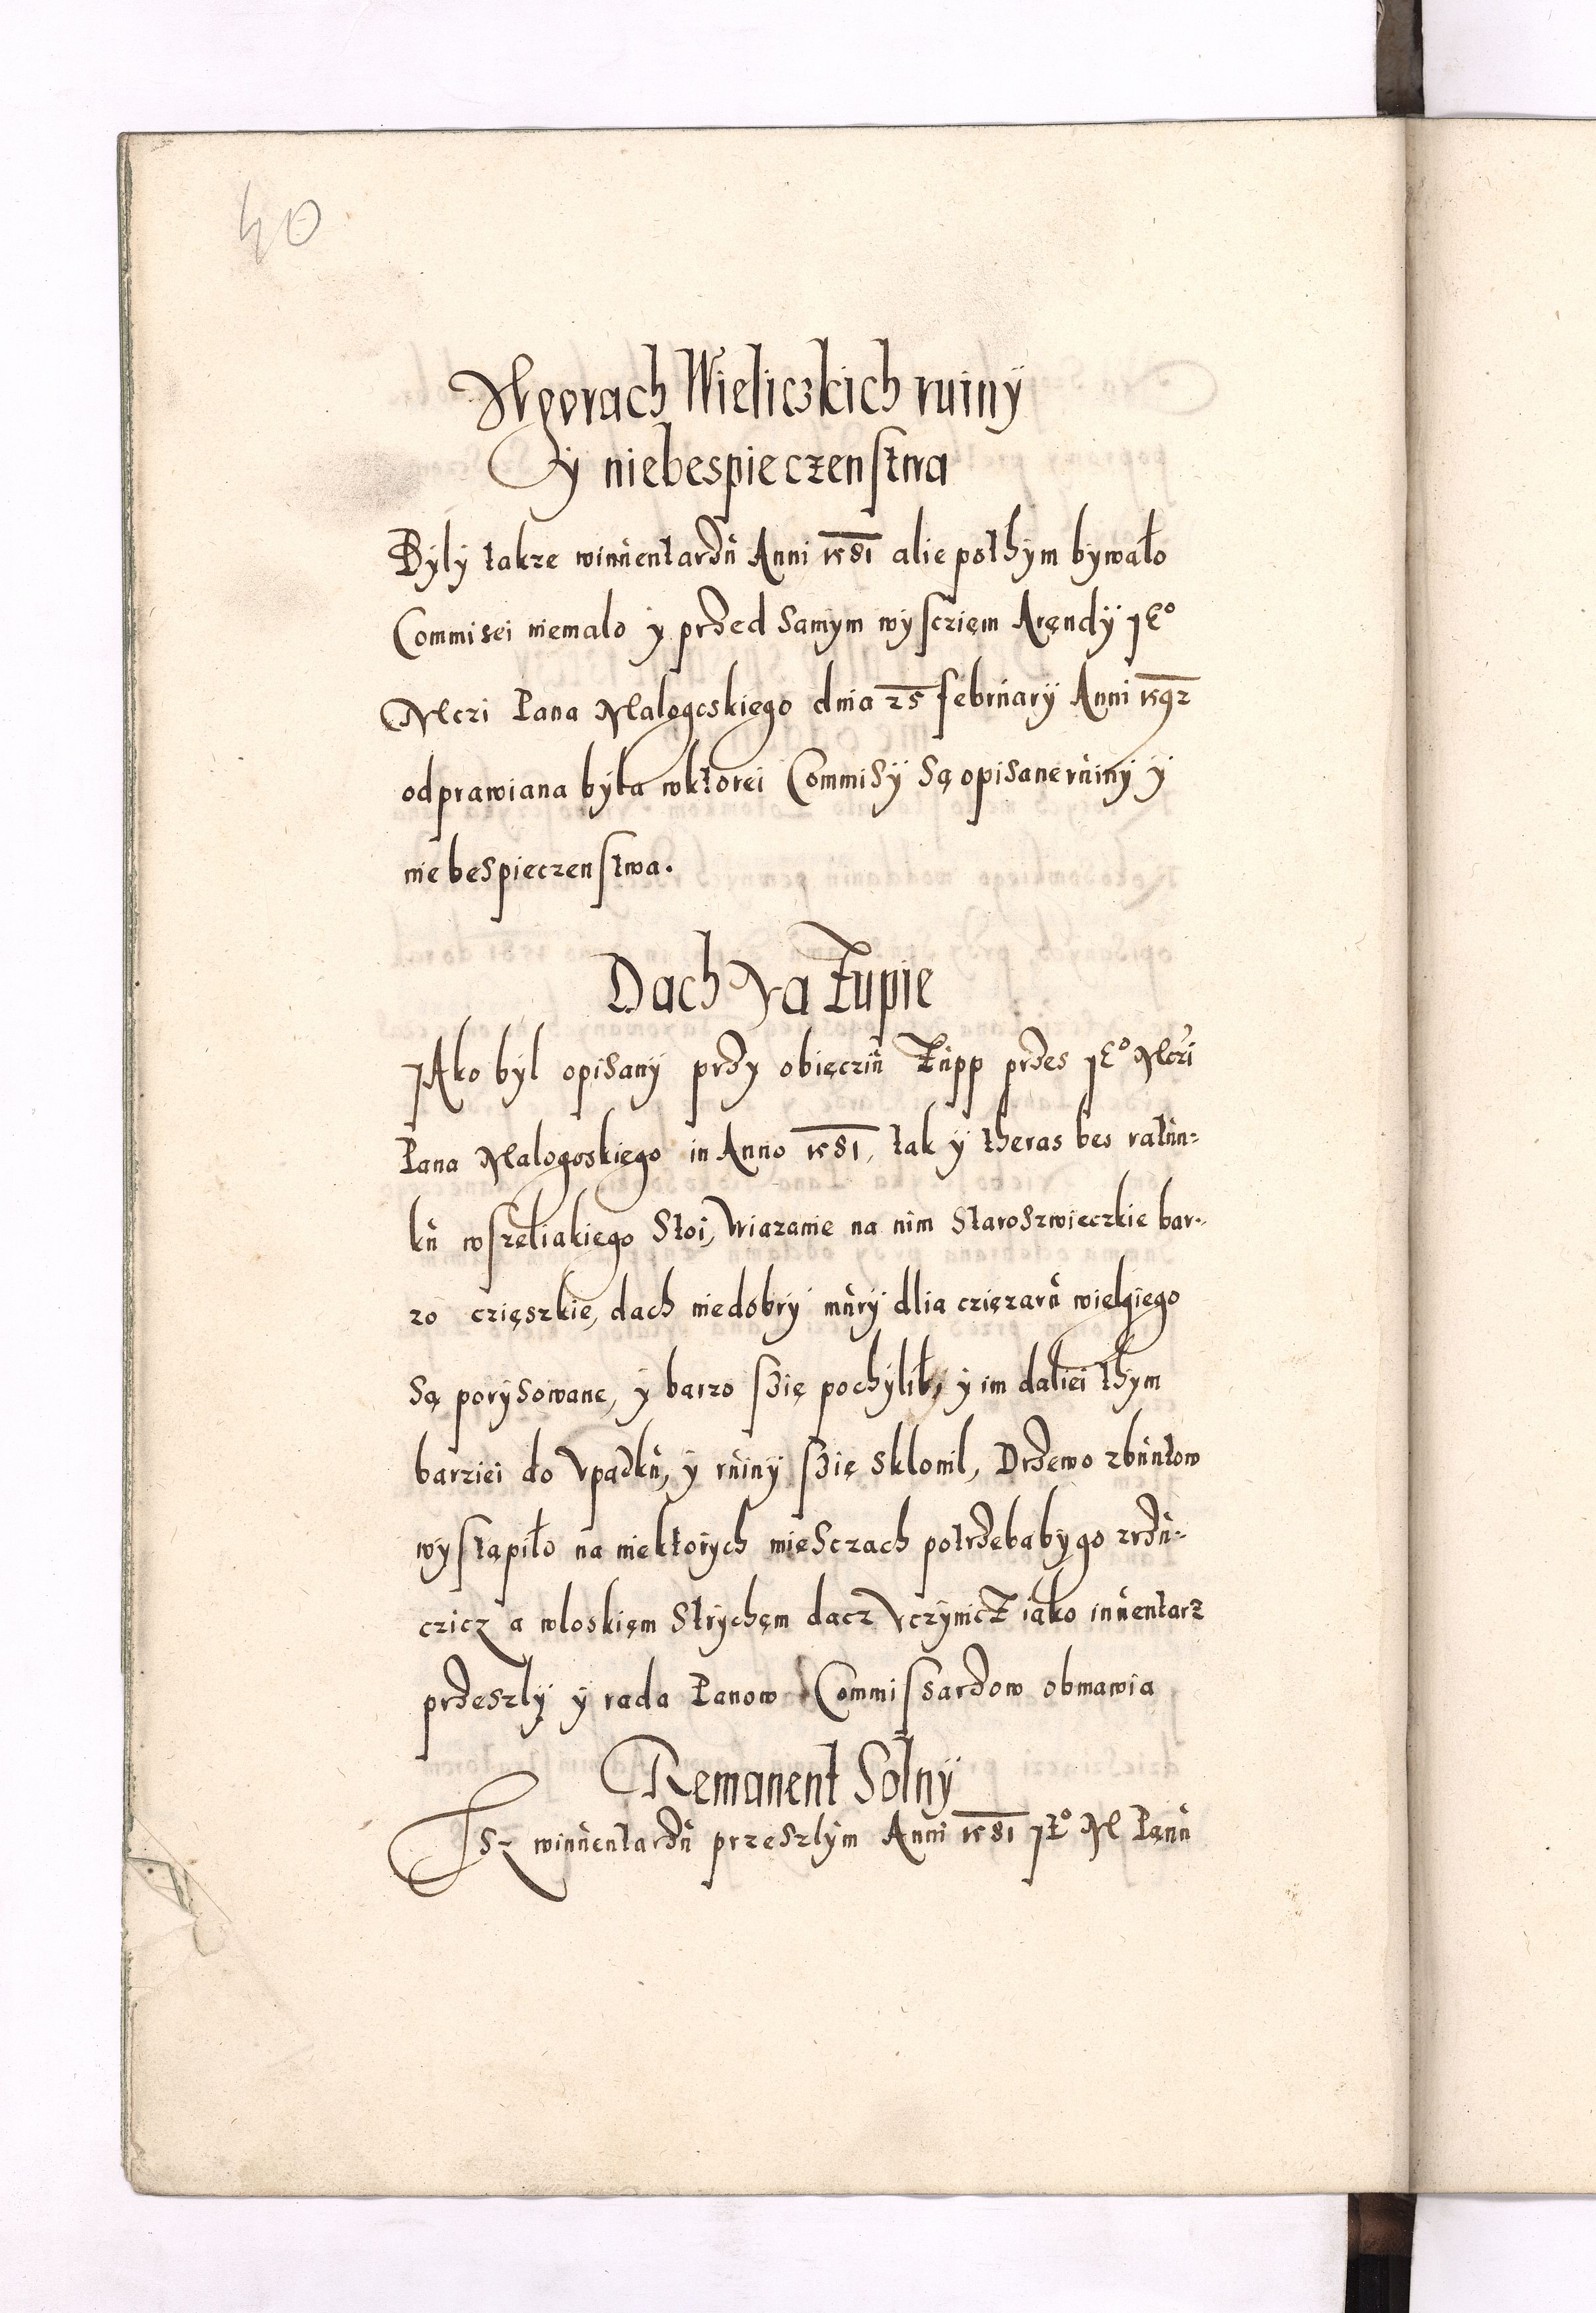 40
Wgorach Wieliczkich ruiny
y niebespieczenstwa
Były takze winuentarzu Anni 1581 alie pothym bywało
Commisei niemalo y przed samym wysczięm Aręndy JE°
Mczi Pana Malogoskięgo dnia 25 februarÿ Anni 1592
odprawiana była wktorei Commisÿ są opisane ruiny y
niebespieczenstwa.
Dach Na Żupie
JAko był opisany przy obięcziu Żupp przes JE° Mczi
Pana Malogoskięgo in Anno 1581, tak y theras bes ratun=
ku wszeliakięgo stoi, Wiazanie na nim staroszwieczkie bar=
zo czięszkie, dach niedobry mury dlia czięzaru wielgięgo
są porysowane, y barzo szię pochylił, y im daliei thym
barziei do Vpadku, y ruiny szię sklonil, Drzewo zbuntow
wystąpiło na niektorych miesczach potrzeba by go zrzu=
czicz a włoskięm strychęm dacz Vczynicz iako inuentarz
przeszly y rada Panow Commissarzow obmawia
Remanent Solny
Isz winuentarzu przeszlym Anni 1581 JE° M Pęnu